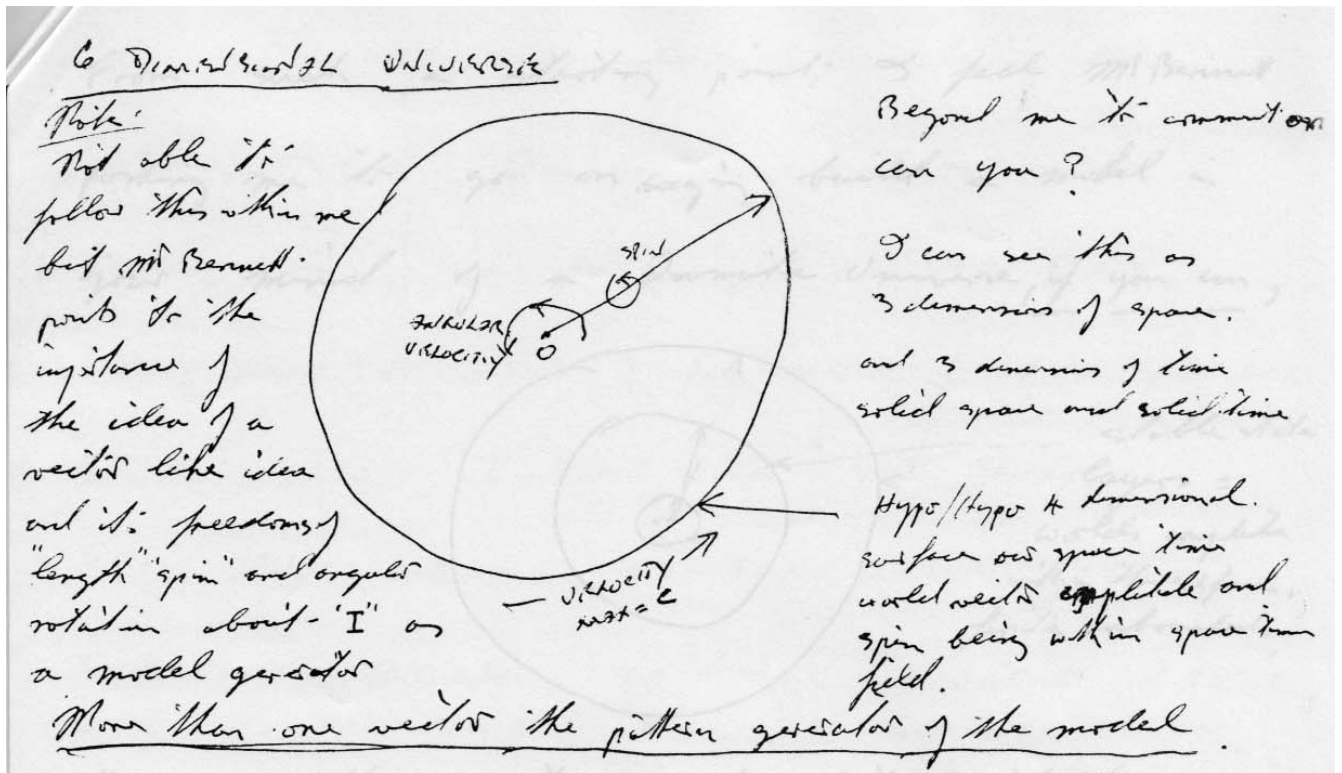 6 DIMENSIONAL UNIVERSE
Note:
Not able to
follow this within me
but Mr Bennett
points to the
importance of
the idea of a
vector like idea
and its freedoms of
"length" "spin" and angular
rotation about "I" as
a model generator
SPIN
ANGULAR
VELOCITY
O
VELOCITY
MAX = C
Beyond me to comment on
can you?
I can see this as
3 dimensions of space.
and 3 dimensions of time
solid space and solid time
Hypo/Hyper 4 dimensional.
surface our space time
world vector amplitude and
spin being within space time
field.
More than one vector the pattern generator of the model.